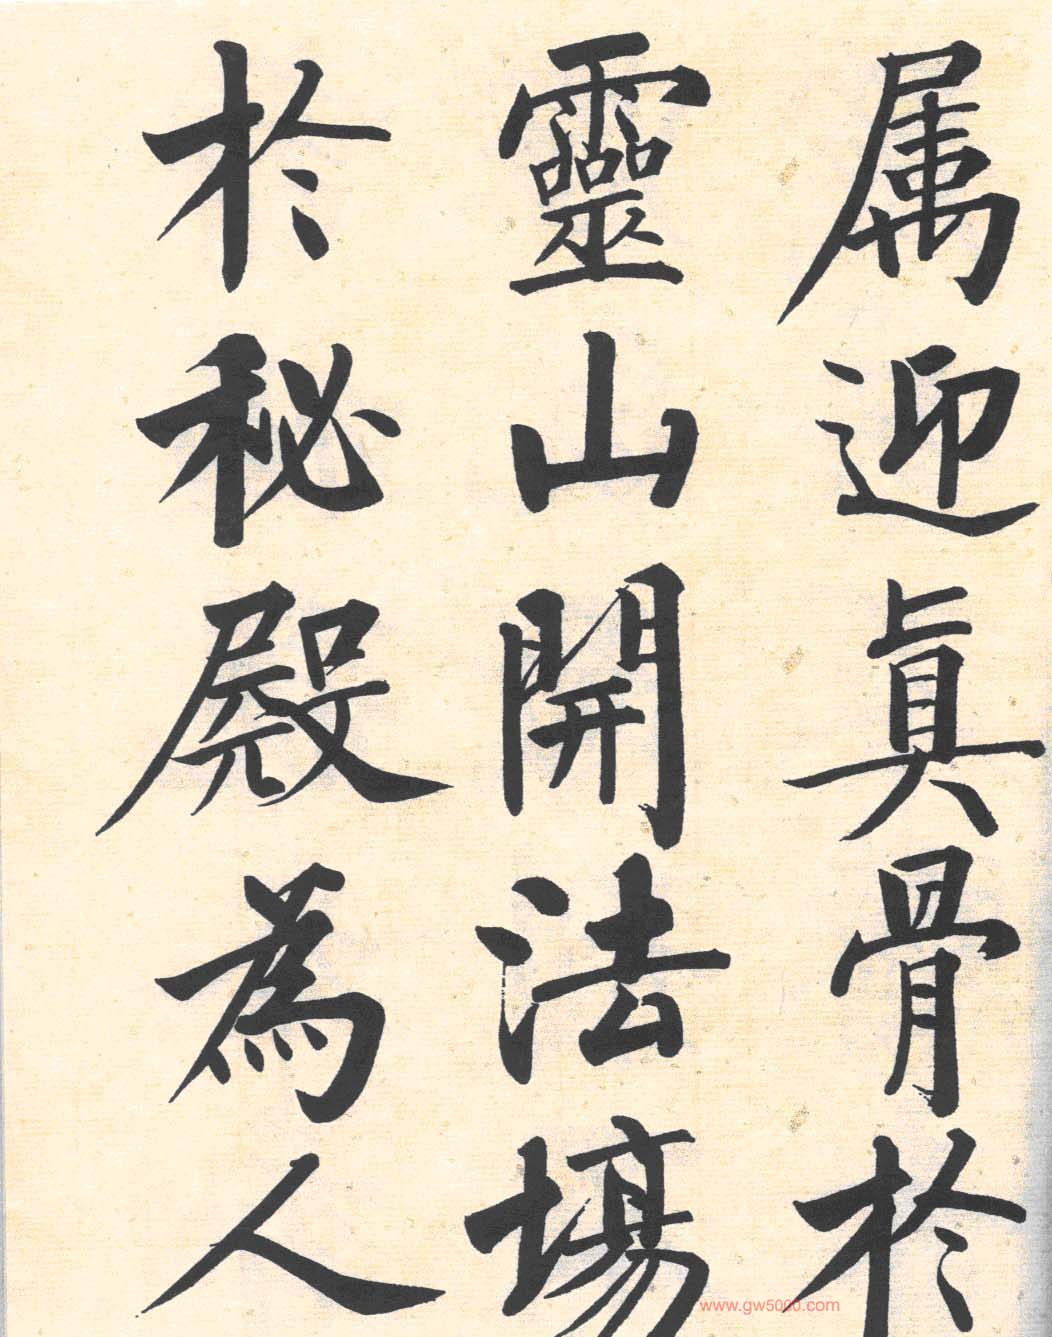 属迎真骨於
靈山開法場
於秘殿為人
www.gw5000.com